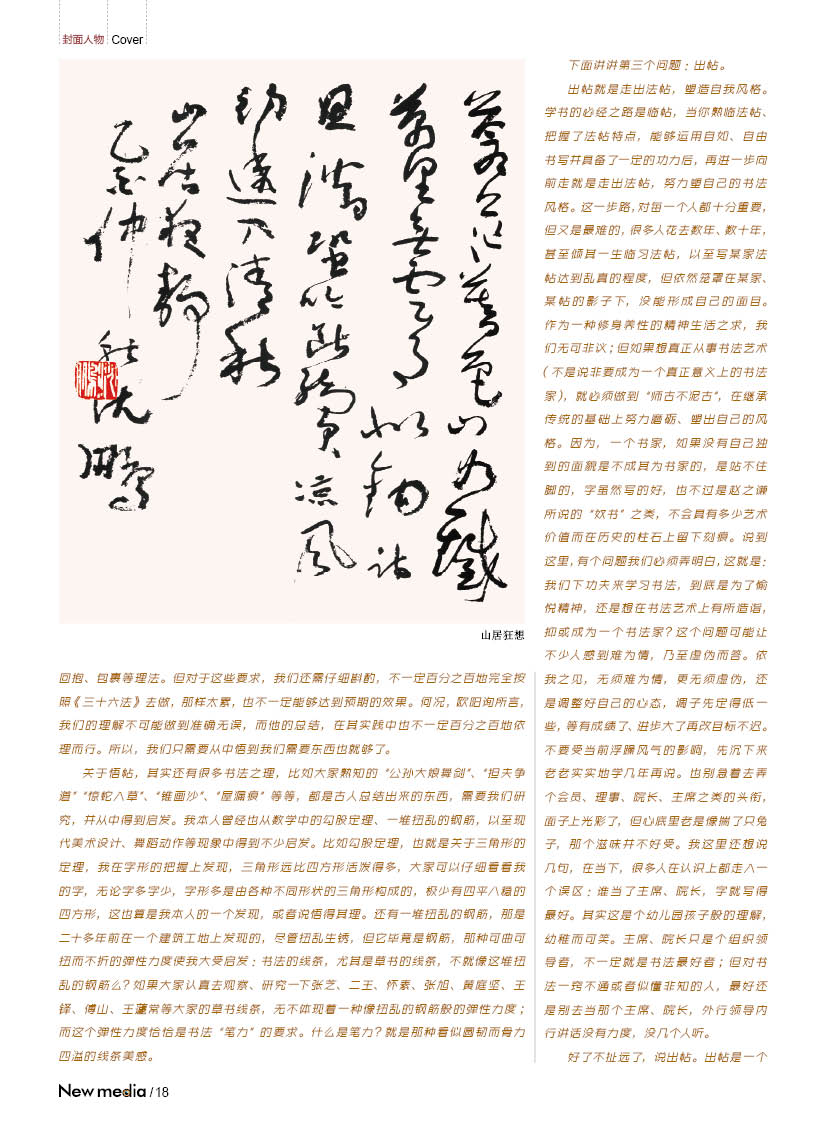 封面人物 Cover
萬里無雲
凉風
清秋
山居
乙亥仲秋沈鹏
山居狂想
回抱、包裹等理法。但对于这些要求，我们还需仔细斟酌，不一定百分之百地完全按
照《三十六法》去做，那样太累，也不一定能够达到预期的效果。何况，欧阳询所言，
我们的理解不可能做到准确无误，而他的总结，在其实践中也不一定百分之百地依
理而行。所以，我们只需要从中悟到我们需要东西也就够了。
关于悟帖，其实还有很多书法之理，比如大家熟知的“公孙大娘舞剑”、“担夫争
道”“惊蛇入草”、“锥画沙”、“屋漏痕”等等，都是古人总结出来的东西，需要我们研
究，并从中得到启发。我本人曾经也从数学中的勾股定理、一堆扭乱的钢筋，以至现
代美术设计、舞蹈动作等现象中得到不少启发。比如勾股定理，也就是关于三角形的
定理，我在字形的把握上发现，三角形远比四方形活泼得多，大家可以仔细看看我
的字，无论字多字少，字形多是由各种不同形状的三角形构成的，极少有四平八稳的
四方形，这也算是我本人的一个发现，或者说悟得其理。还有一堆扭乱的钢筋，那是
二十多年前在一个建筑工地上发现的，尽管扭乱生锈，但它毕竟是钢筋，那种可曲可
扭而不折的弹性力度使我大受启发：书法的线条，尤其是草书的线条，不就像这堆扭
乱的钢筋么？如果大家认真去观察、研究一下张芝、二王、怀素、张旭、黄庭坚、王
铎、傅山、王蘧常等大家的草书线条，无不体现着一种像扭乱的钢筋般的弹性力度；
而这个弹性力度恰恰是书法“笔力”的要求。什么是笔力？就是那种看似圆韧而骨力
四溢的线条美感。
下面讲讲第三个问题：出帖。
出帖就是走出法帖，塑造自我风格。
学书的必经之路是临帖，当你熟临法帖、
把握了法帖特点，能够运用自如、自由
书写并具备了一定的功力后，再进一步向
前走就是走出法帖，努力塑自己的书法
风格。这一步路，对每一个人都十分重要，
但又是最难的，很多人花去数年、数十年，
甚至倾其一生临习法帖，以至写某家法
帖达到乱真的程度，但依然笼罩在某家、
某帖的影子下，没能形成自己的面目。
作为一种修身养性的精神生活之求，我
们无可非议；但如果想真正从事书法艺术
（不是说非要成为一个真正意义上的书法
家），就必须做到“师古不泥古”，在继承
传统的基础上努力磨砺、塑出自己的风
格。因为，一个书家，如果没有自己独
到的面貌是不成其为书家的，是站不住
脚的，字虽然写的好，也不过是赵之谦
所说的“奴书”之类，不会具有多少艺术
价值而在历史的柱石上留下刻痕。说到
这里，有个问题我们必须弄明白，这就是：
我们下功夫来学习书法，到底是为了愉
悦精神，还是想在书法艺术上有所造诣，
抑或成为一个书法家？这个问题可能让
不少人感到难为情，乃至虚伪而答。依
我之见，无须难为情，更无须虚伪，还
是调整好自己的心态，调子先定得低一
些，等有成绩了、进步大了再改目标不迟。
不要受当前浮躁风气的影响，先沉下来
老老实实地学几年再说。也别急着去弄
个会员、理事、院长、主席之类的头衔，
面子上光彩了，但心底里老是像揣了只兔
子，那个滋味并不好受。我这里还想说
几句，在当下，很多人在认识上都走入一
个误区：谁当了主席、院长，字就写得
最好。其实这是个幼儿园孩子般的理解，
幼稚而可笑。主席、院长只是个组织领
导者，不一定就是书法最好者；但对书
法一窍不通或者似懂非知的人，最好还
是别去当那个主席、院长，外行领导内
行讲话没有力度，没几个人听。
好了不扯远了，说出帖。出帖是一个
New media / 18